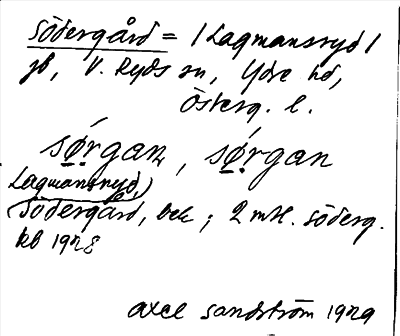 Södergård = / Lagmansryd /
jb, V. Ryds sn, Ydre hd,
Österg. l.
sǿ̣rgaṇ, sǿ̣rgan
Lagmansryd,
Södergård, bek ; 2 mtl. söderg.
kb 1928
Axel Sandström 1929